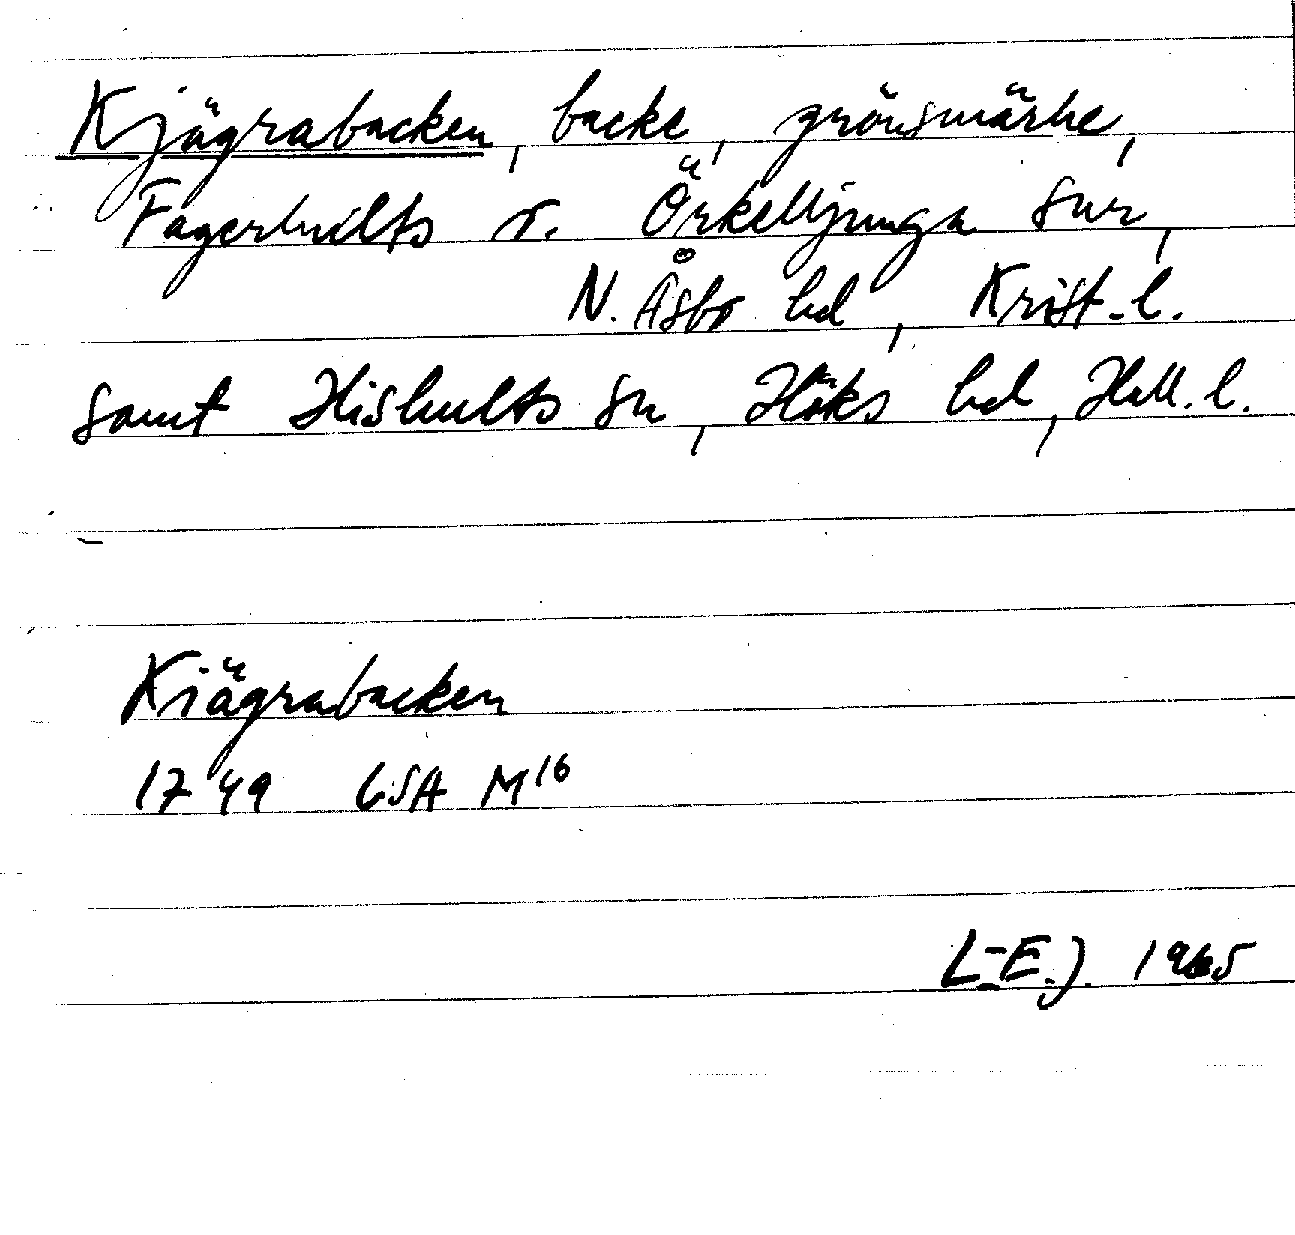 Kjägrabacken, backe, gränsmärke,
Fagerhults o. Örkelljunga snr,
N. Åsbo hd, Krist. l.
samt Hishults sn, Höks hd, Hall. l.
Kiägrabacken
1749 LSA M16
L-E.J. 1965